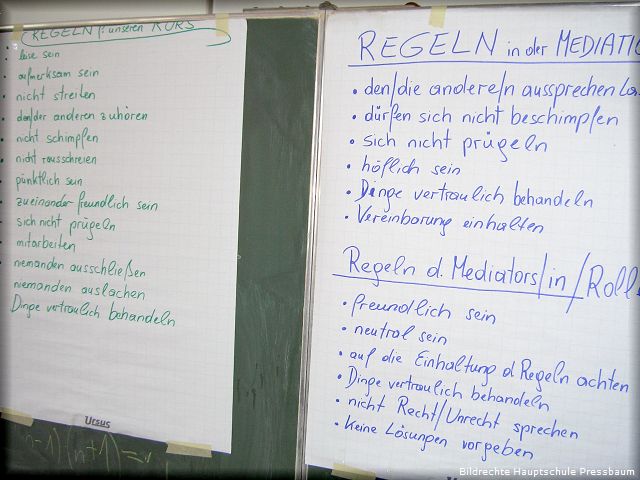 REGELN f. unseren KURS
leise sein
aufmerksam sein
nicht streiten
den/der anderen zuhören
nicht schimpfen
nicht rausschreien
pünktlich sein
zueinander freundlich sein
sich nicht prügeln
mitarbeiten
niemanden ausschließen
niemanden auslachen
Dinge vertraulich behandeln
Ursus
n-1)(n+1)=
REGELN in der MEDIATIO
• den/die andere/n aussprechen la
• dürfen sich nicht beschimpfen
• sich nicht prügeln
• höflich sein
• Dinge vertraulich behandeln
• Vereinbarung einhalten
Regeln d. Mediators/in/Roll
• freundlich sein
• neutral sein
• auf die Einhaltung d Regeln achten
• Dinge vertraulich behandeln
• nicht Recht/Unrecht sprechen
• keine Lösungen vorgeben
Bildrechte Hauptschule Pressbaum